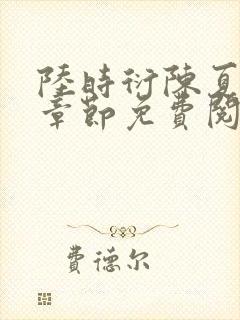 陸時衍陳夏
章節免費閱
費德尔